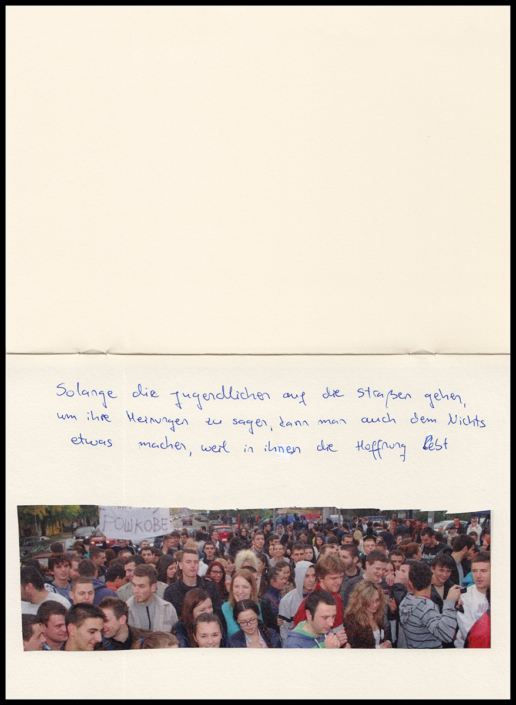 Solange die Jugendlichen auf die Straßen gehen,
um ihre Meinungen zu sagen, kann man auch dem Nichts
etwas machen, weil in ihnen die Hoffnung lebt
РОШКОВЕ